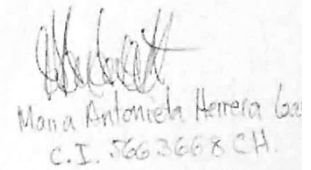 Maria Antonieta Herrera
C.I. 5663668 CH.